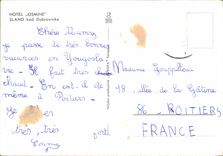 HOTEL „OSMINE"
SLANO kod Dubrovnika
Chère Mamy
je passe de très bonnes
vacances en Yougosla-
vie. Il fait très
chaud. En est-il de
même à Poitiers.
Je
très, très
fort
Madame Jouppillou
48, allée de la Gâtine
86 POITIERS
FRANCE